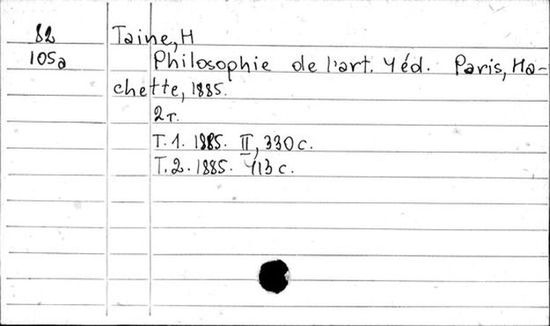 82 Taine, H
105a Philosophie de l'art. 4 éd. Paris, Ha-
chette, 1885.
2 т.
Т. 1. 1885. II, 330 с.
Т. 2. 1885. 413 с.